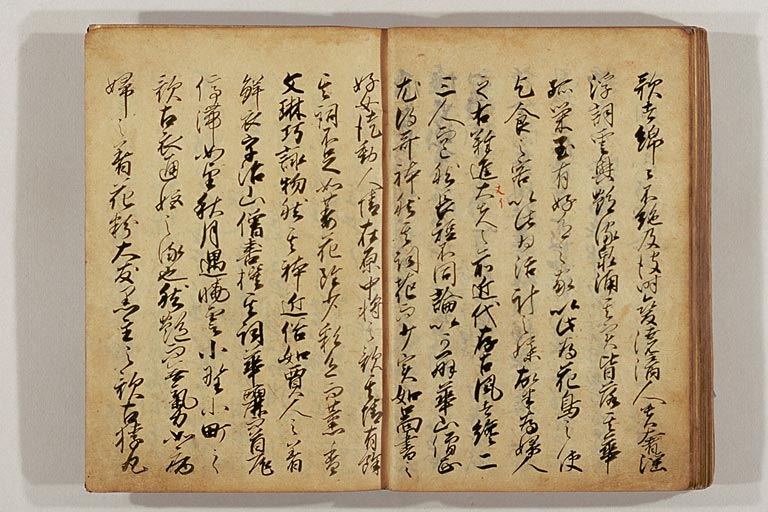 歌者綿々不絶及彼時變澆漓人貴奢淫
浮詞雲興艶流泉涌其実皆落其華
孤栄至有好色之家以此為花鳥之使
乞食之客以此為活計之媒故半為婦人
之右難進大夫之前近代存古風者纔二
三人而已然長短不同論以可辨華山僧正
尤得哥躰然其詞花而少実如啚畫之
好女徒動人情在原中将之歌其情有餘
其詞不足如萎花雖少彩色而薫香
文琳巧詠物然其躰近俗如賈人之着
鮮衣宇治山僧喜撰其詞華麗而首尾
停滞如望秋月遇暁雲小野小町之
歌古衣通姫之流也然艶而無気力如病
婦之着花粉大友黒主之歌古猿丸